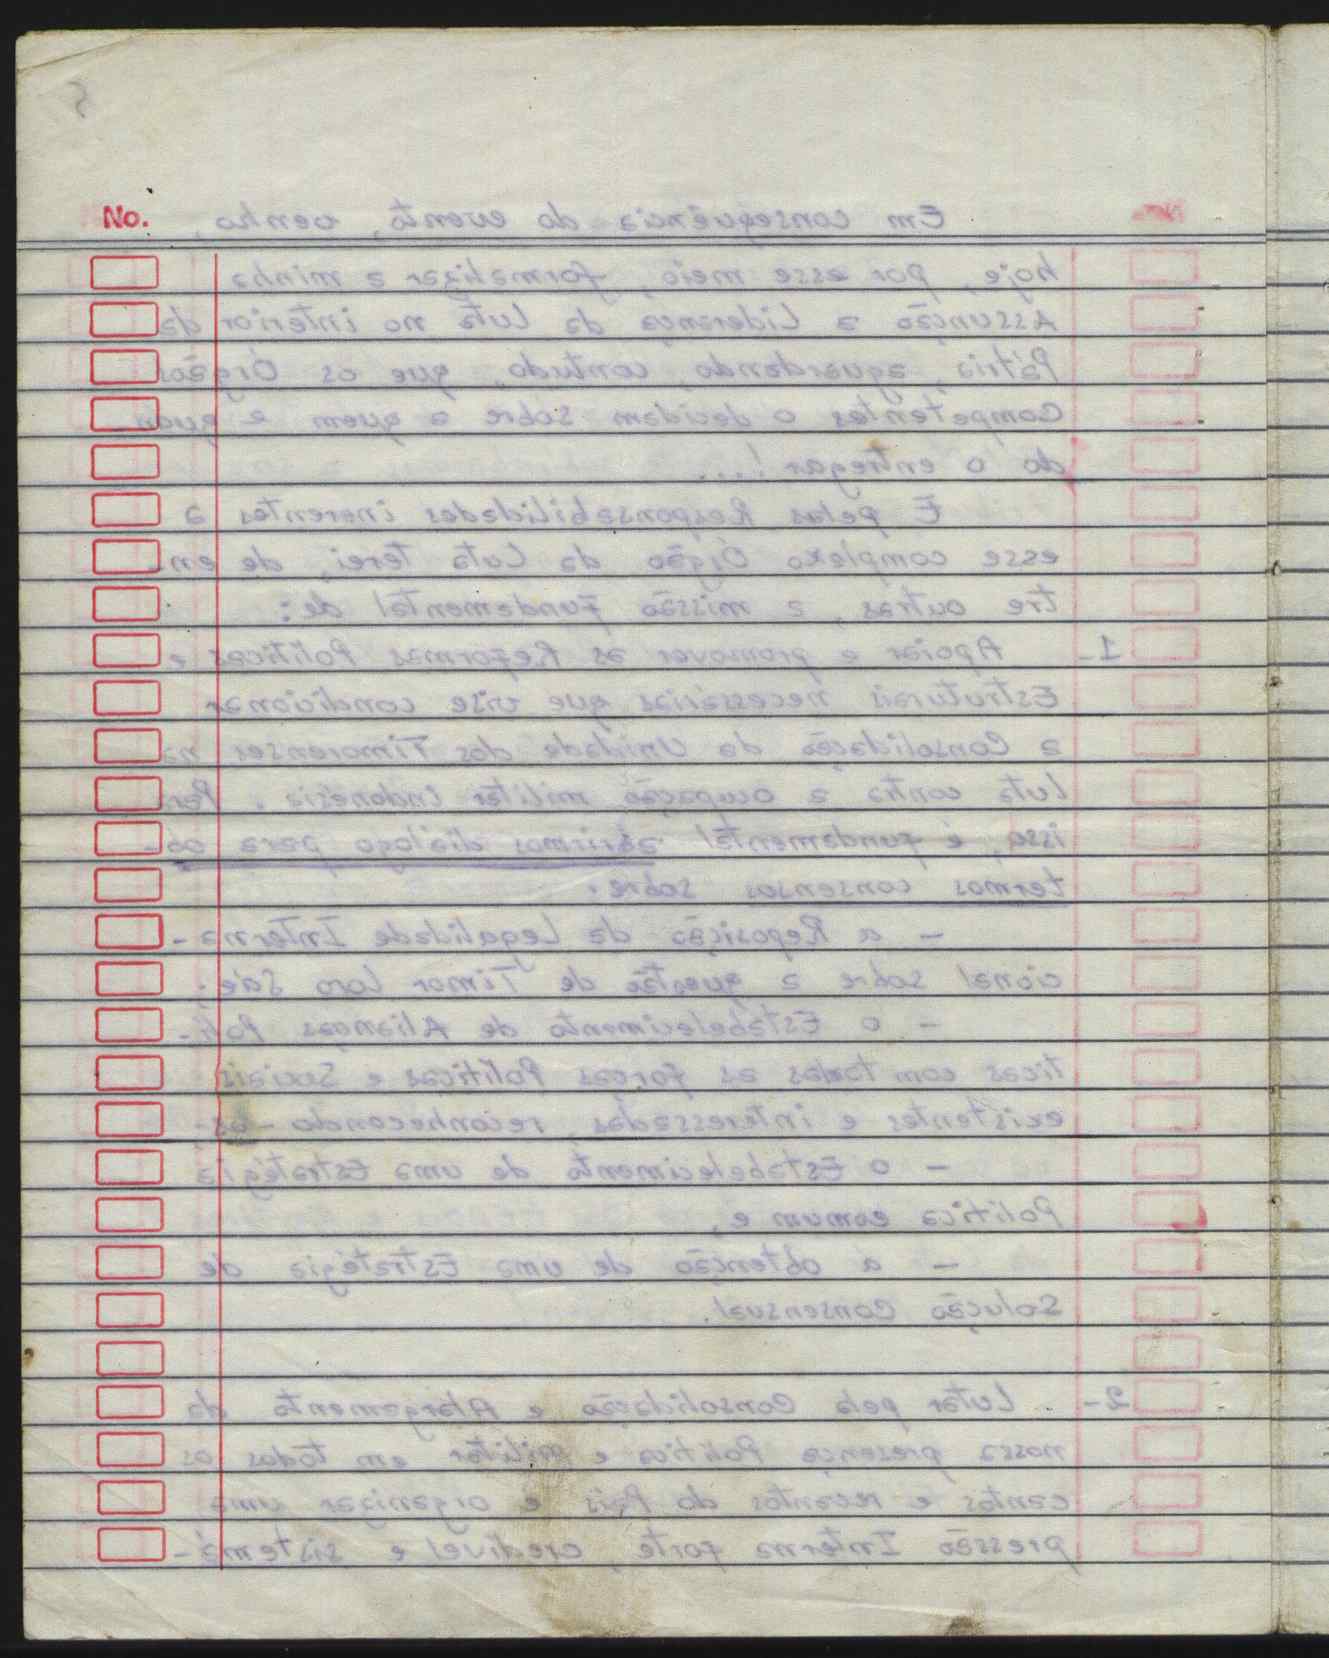 5
No.
Em consequência do evento, venho,
hoje, por esse meio, formalizar a minha
Assunção a Liderança da Luta no interior da
Pátria, aguardando, contudo, que os Órgãos
Competentes o decidam sobre a quem e quan-
do o entregar!...
E pelas Responsabilidades inerentes a
esse complexo Órgão da Luta terei, de en-
tre outras, a missão fundamental de:
1- Apoiar e promover as Reformas Políticas e
Estruturais necessárias que vise condicionar
a Consolidação da Unidade dos Timorenses na
Luta contra a ocupação militar indonésia. Por
isso, é fundamental abrirmos diálogo para ob-
termos consensos sobre:
- a Reposição da Legalidade Interna-
cional sobre a questão de Timor Loro Sa'e;
- o Estabelecimento de Alianças Polí-
ticas com todas as forças Políticas e Sociais
existentes e interessadas, reconhecendo-as;
- o Estabelecimento de uma Estratégia
Política comum e,
- a obtenção de uma Estratégia de
Solução Consensual.
2- Lutar pela Consolidação e Alargamento da
nossa presença Política e militar em todos os
cantos e recantos do País e organizar uma
pressão Interna forte, credível e sistemá-